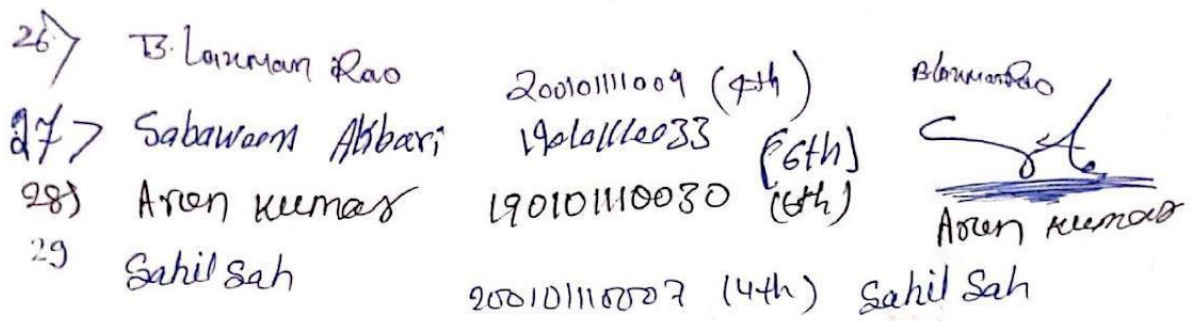 26> B. Laxman Rao 200101111009 (4th) B Laxman Rao
27> Sabawoon Akbari 190101110033 [6th]
28) Arun Kumar 190101110030 (6th) Arun Kumar
29 Sahil Sah 200101110007 (4th) Sahil Sah